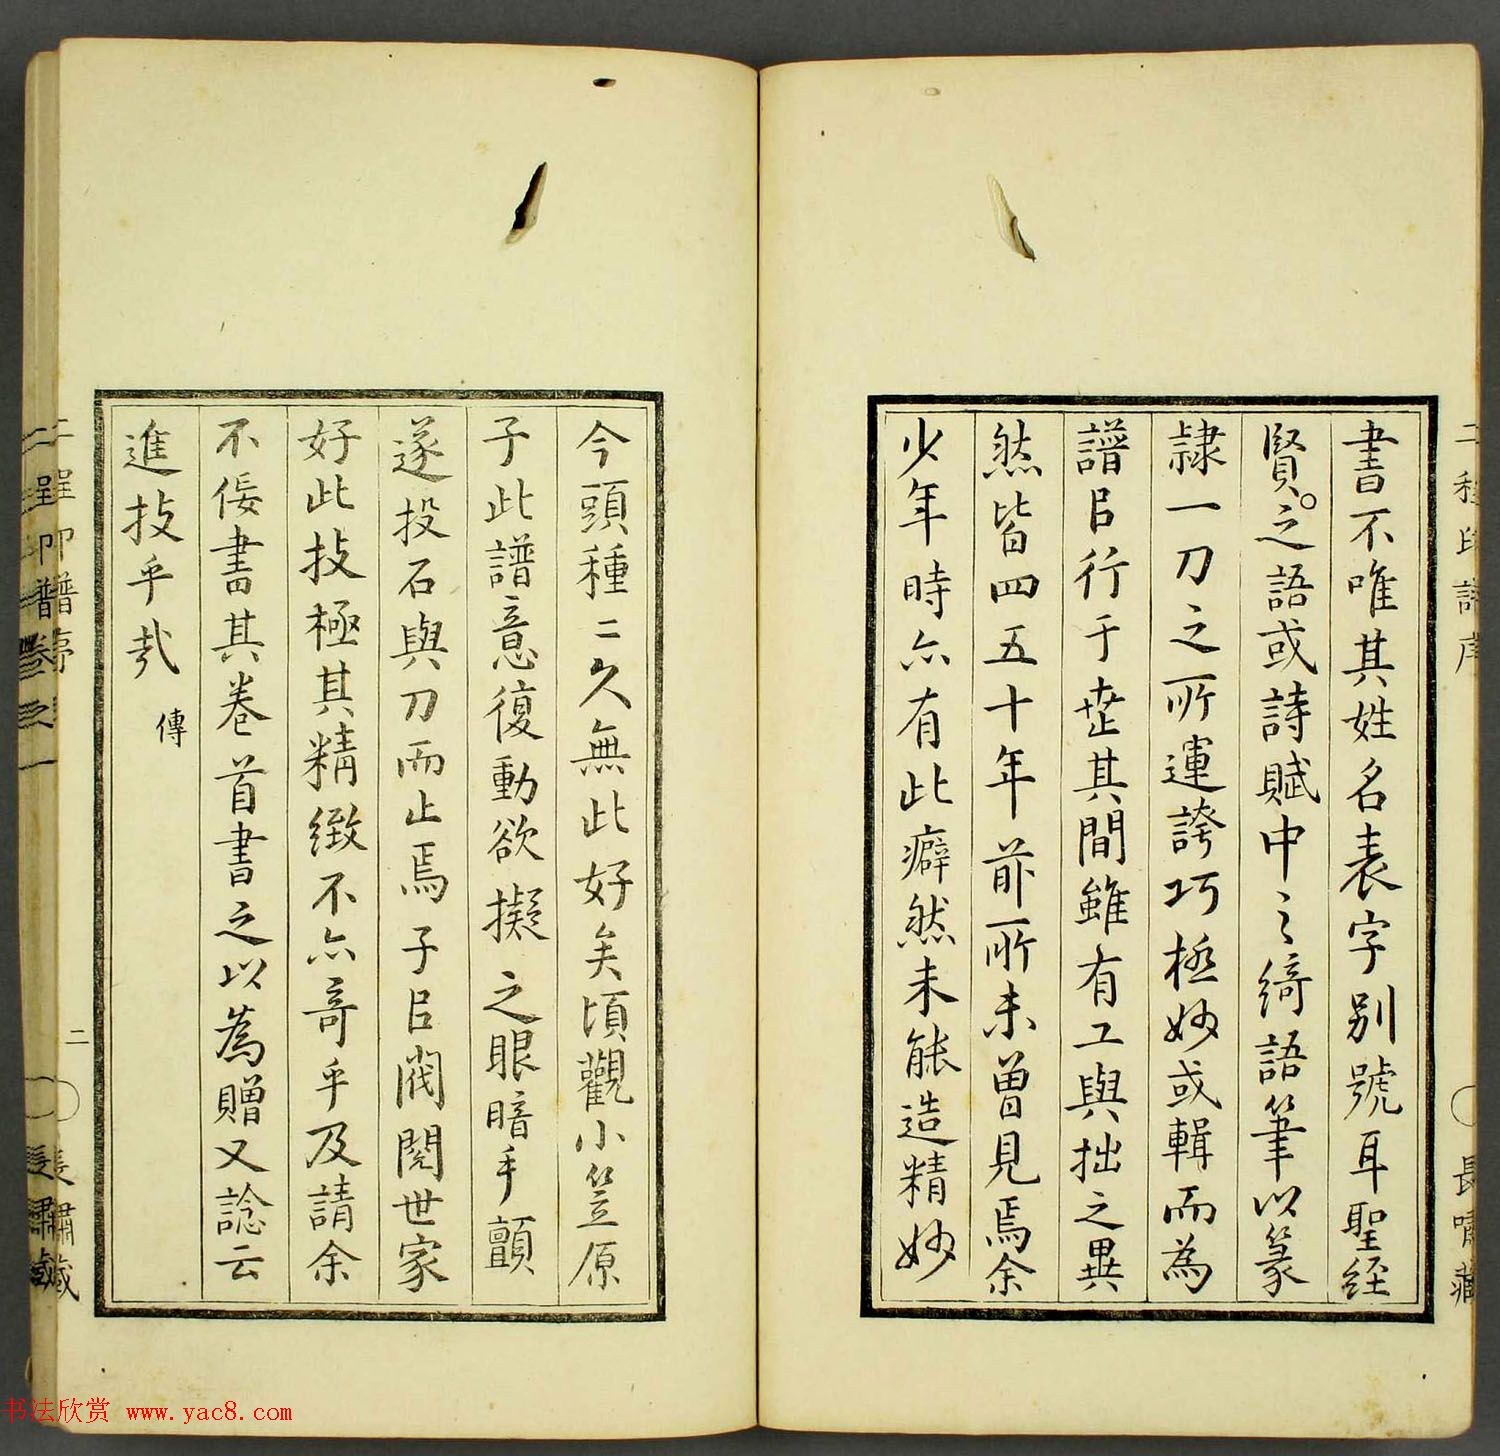 書不唯其姓名表字別號耳聖經
賢之語或詩賦中之綺語筆以篆
隷一刀之所運誇巧極妙或輯而為
譜㠯行于世其間雖有工與拙之異
然皆四五十年前所未曽見焉余
少年時亦有此癖然未能造精妙
今頭種〻久無此好矣頃觀小笠原
子此譜意復動欲擬之眼暗手顫
遂投石與刀而止焉子㠯閥閱世家
好此技極其精緻不亦奇乎及請余
不佞書其卷首書之以為贈又諗云
進技乎哉 傳
二程印譜序
二
長嘯藏
二程印譜卷之一
長嘯藏
二程印譜序
長嘯藏
书法欣赏 www.yac8.com